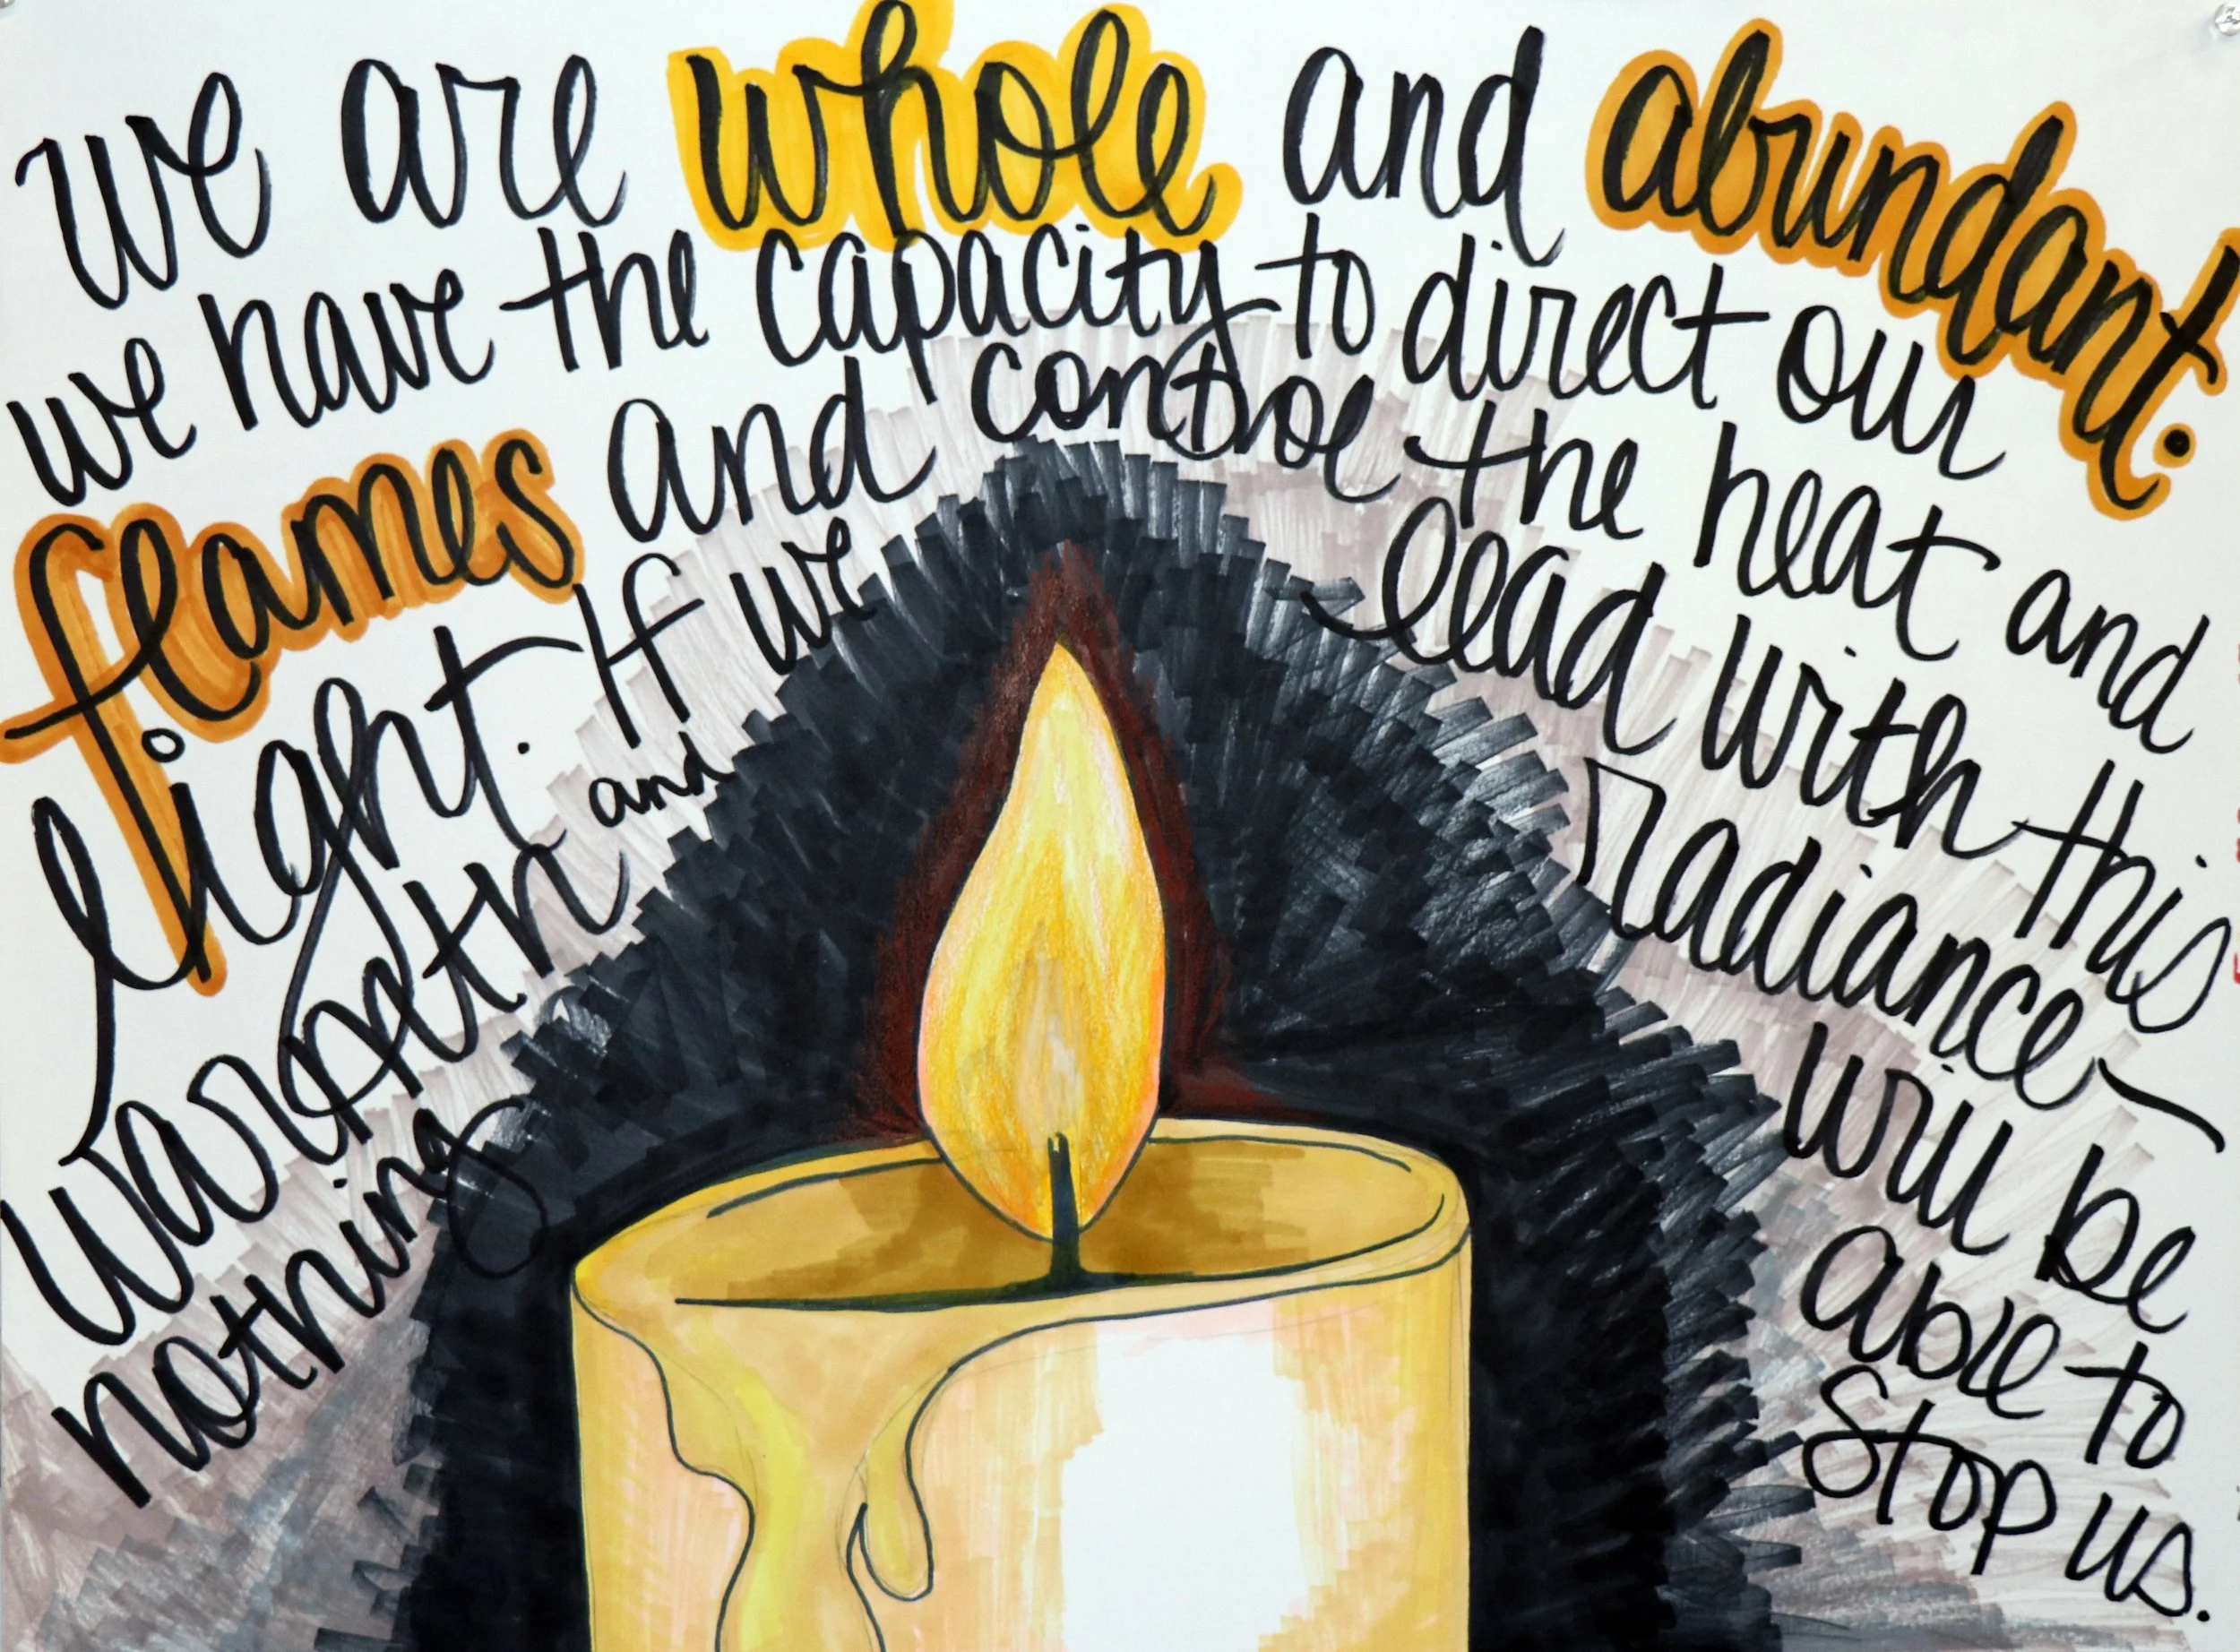 we are whole and abundant.
we have the capacity to direct our
flames and control the heat and
light. If we lead with this
warmth and radiance—
nothing will be
able to
stop us.